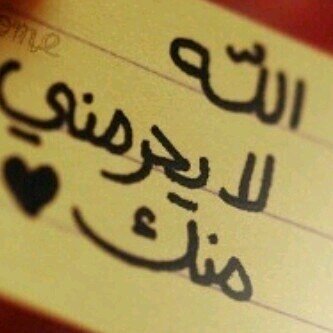 الله
لا يحرمني
منك
ome